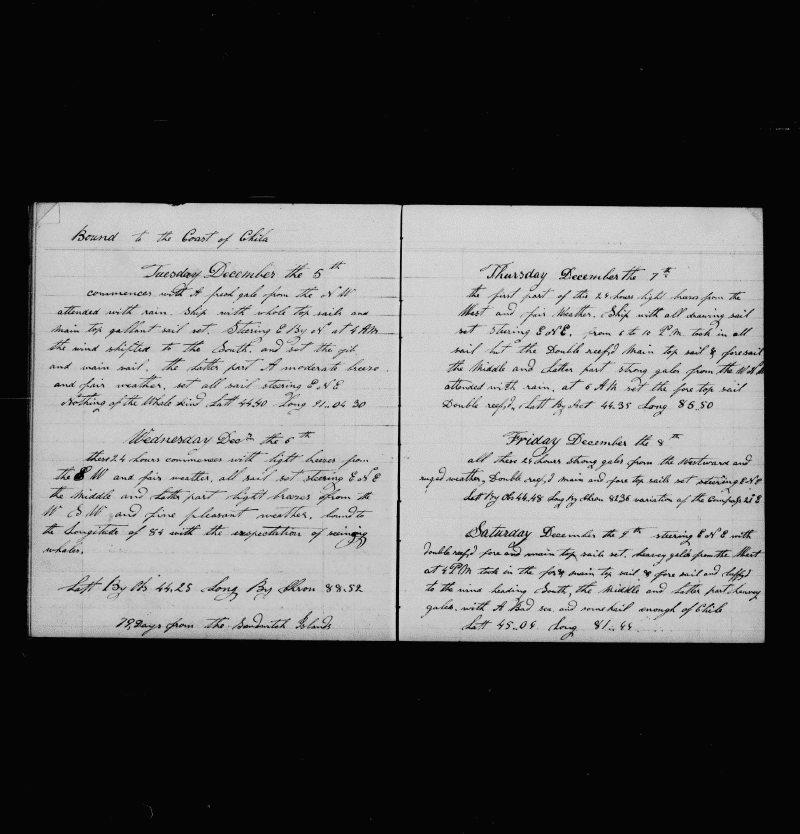 Bound to the Coast of Chila
Tuesday December the 5th
commences with A fresh gale from the N W
attended with rain. Ship with whole top sails and
main top gallant sail set. Stering E By N at 4 A.M.
the wind shifted to the South, and set the jib
and main sail. the latter part A moderate breeze
and fair weather, set all sail stering E N E
Nothing of the Whale kind Latt 44.40 Long 91.04 30
Wednesday Dec the 6th
these 24 hours commences with light breezes from
the S W and fair weather, all sail set stering E N E
the Middle and latter part light breezes from the
W S W and fine pleasant weather. bound to
the Longitude of 84 with the exspectation of seeing
whales.
Latt By Obs 44.25 Long By Chron 88.52
79 Days from the Sandwitch Islands
Thursday December the 7th
the first part of this 24 hours light breezes from the
West and fair Weather. Ship with all drawing sail
set Stering E N E. from 6 to 10 P.M. took in all
sail but the Double reef'd Main top sail & foresail
the Middle and latter part strong gales from the W N W
attended with rain. at 6 A M set the fore top sail
Double reef'd, Latt By Act 44.35 Long 85.50
Friday December the 8th
all these 24 hours strong gales from the Westward and
ruged weather, Double reef'd main and fore top sails set stering E N E
Latt By Obs 44.48 Long By Chron 82.36 variation of the Compass 20 E
Saturday December the 9th steering E N E with
double reef'd fore and main top sails set. heavey gales from the West
at 8 P.M. took in the fore & main top sail & fore sail and luff'd
to the wind heading South, the Middle and latter part heavey
gales. with A Bad sea. and some hail enough of Chile
Latt 45..04 Long 81..44